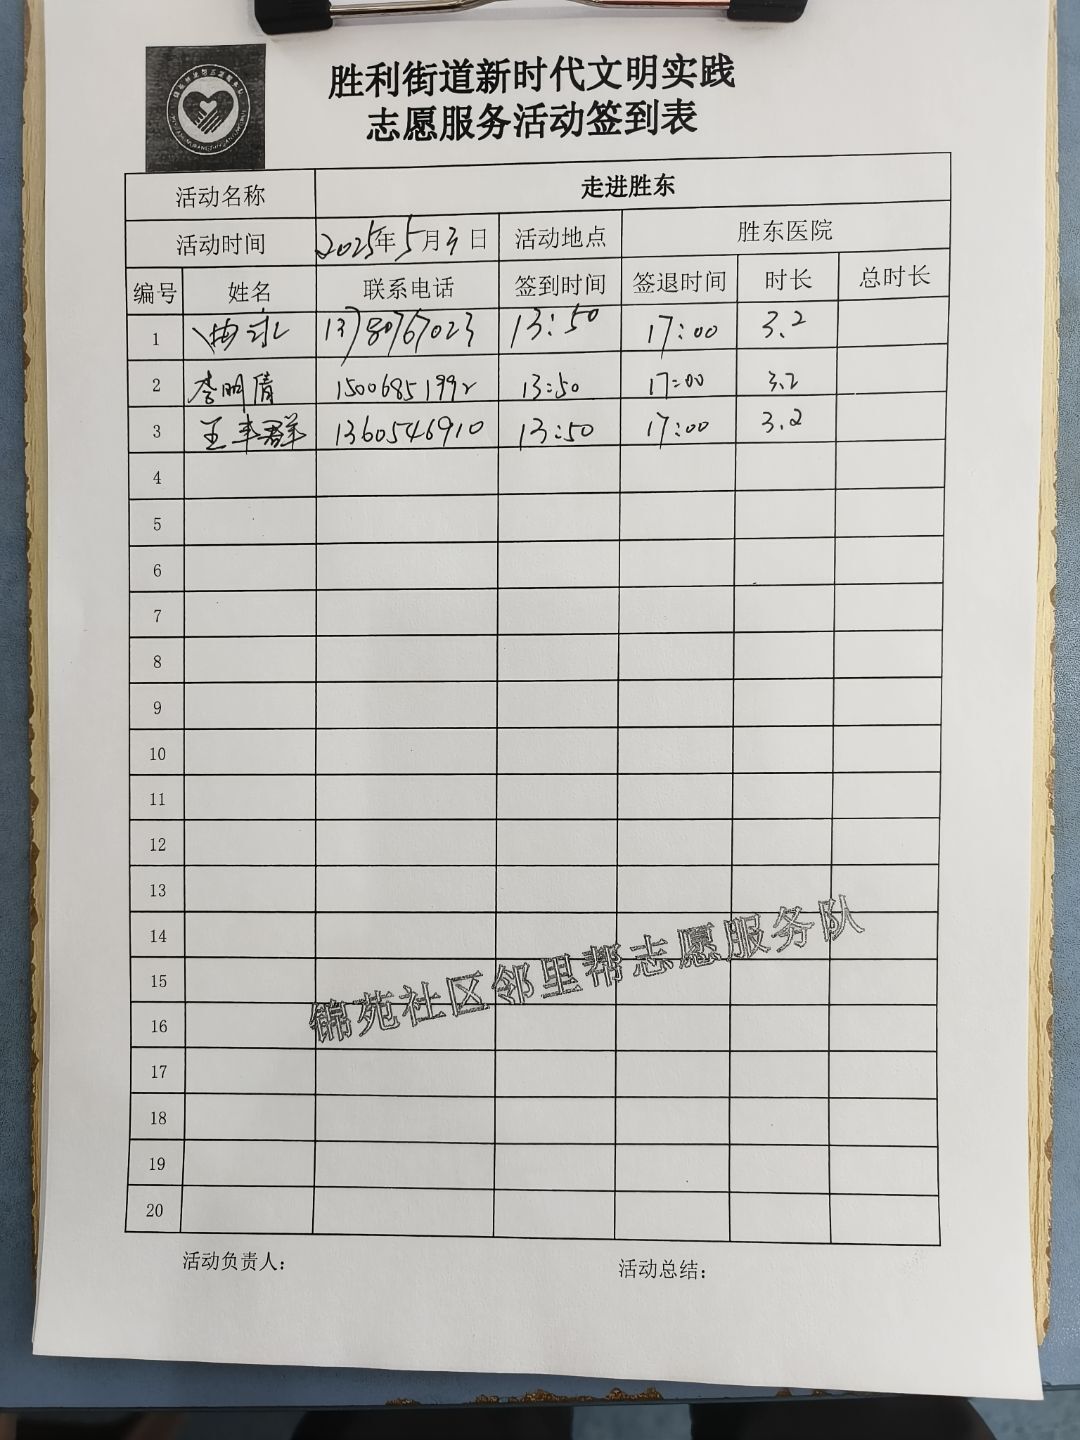 胜利街道新时代文明实践
志愿服务活动签到表
活动名称 走进胜东
活动时间 2025年5月3日 活动地点 胜东医院
编号 姓名 联系电话 签到时间 签退时间 时长 总时长
1 13780767023 13:50 17:00 3.2
2 李明倩 15006851992 13:50 17:00 3.2
3 王丰群 13605446910 13:50 17:00 3.2
4
5
6
7
8
9
10
11
12
13
14
15
16
17
18
19
20
锦苑社区邻里帮志愿服务队
活动负责人： 活动总结：